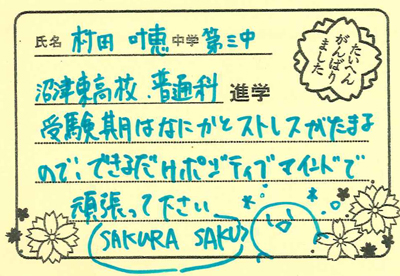 氏名 村田 叶恵 中学 第三中
たいへん
がんばり
ました
沼津東高校 普通科 進学
受験期はなにかとストレスがたまる
ので、できるだけポジティブマインドで
頑張って下さい
SAKURA SAKU